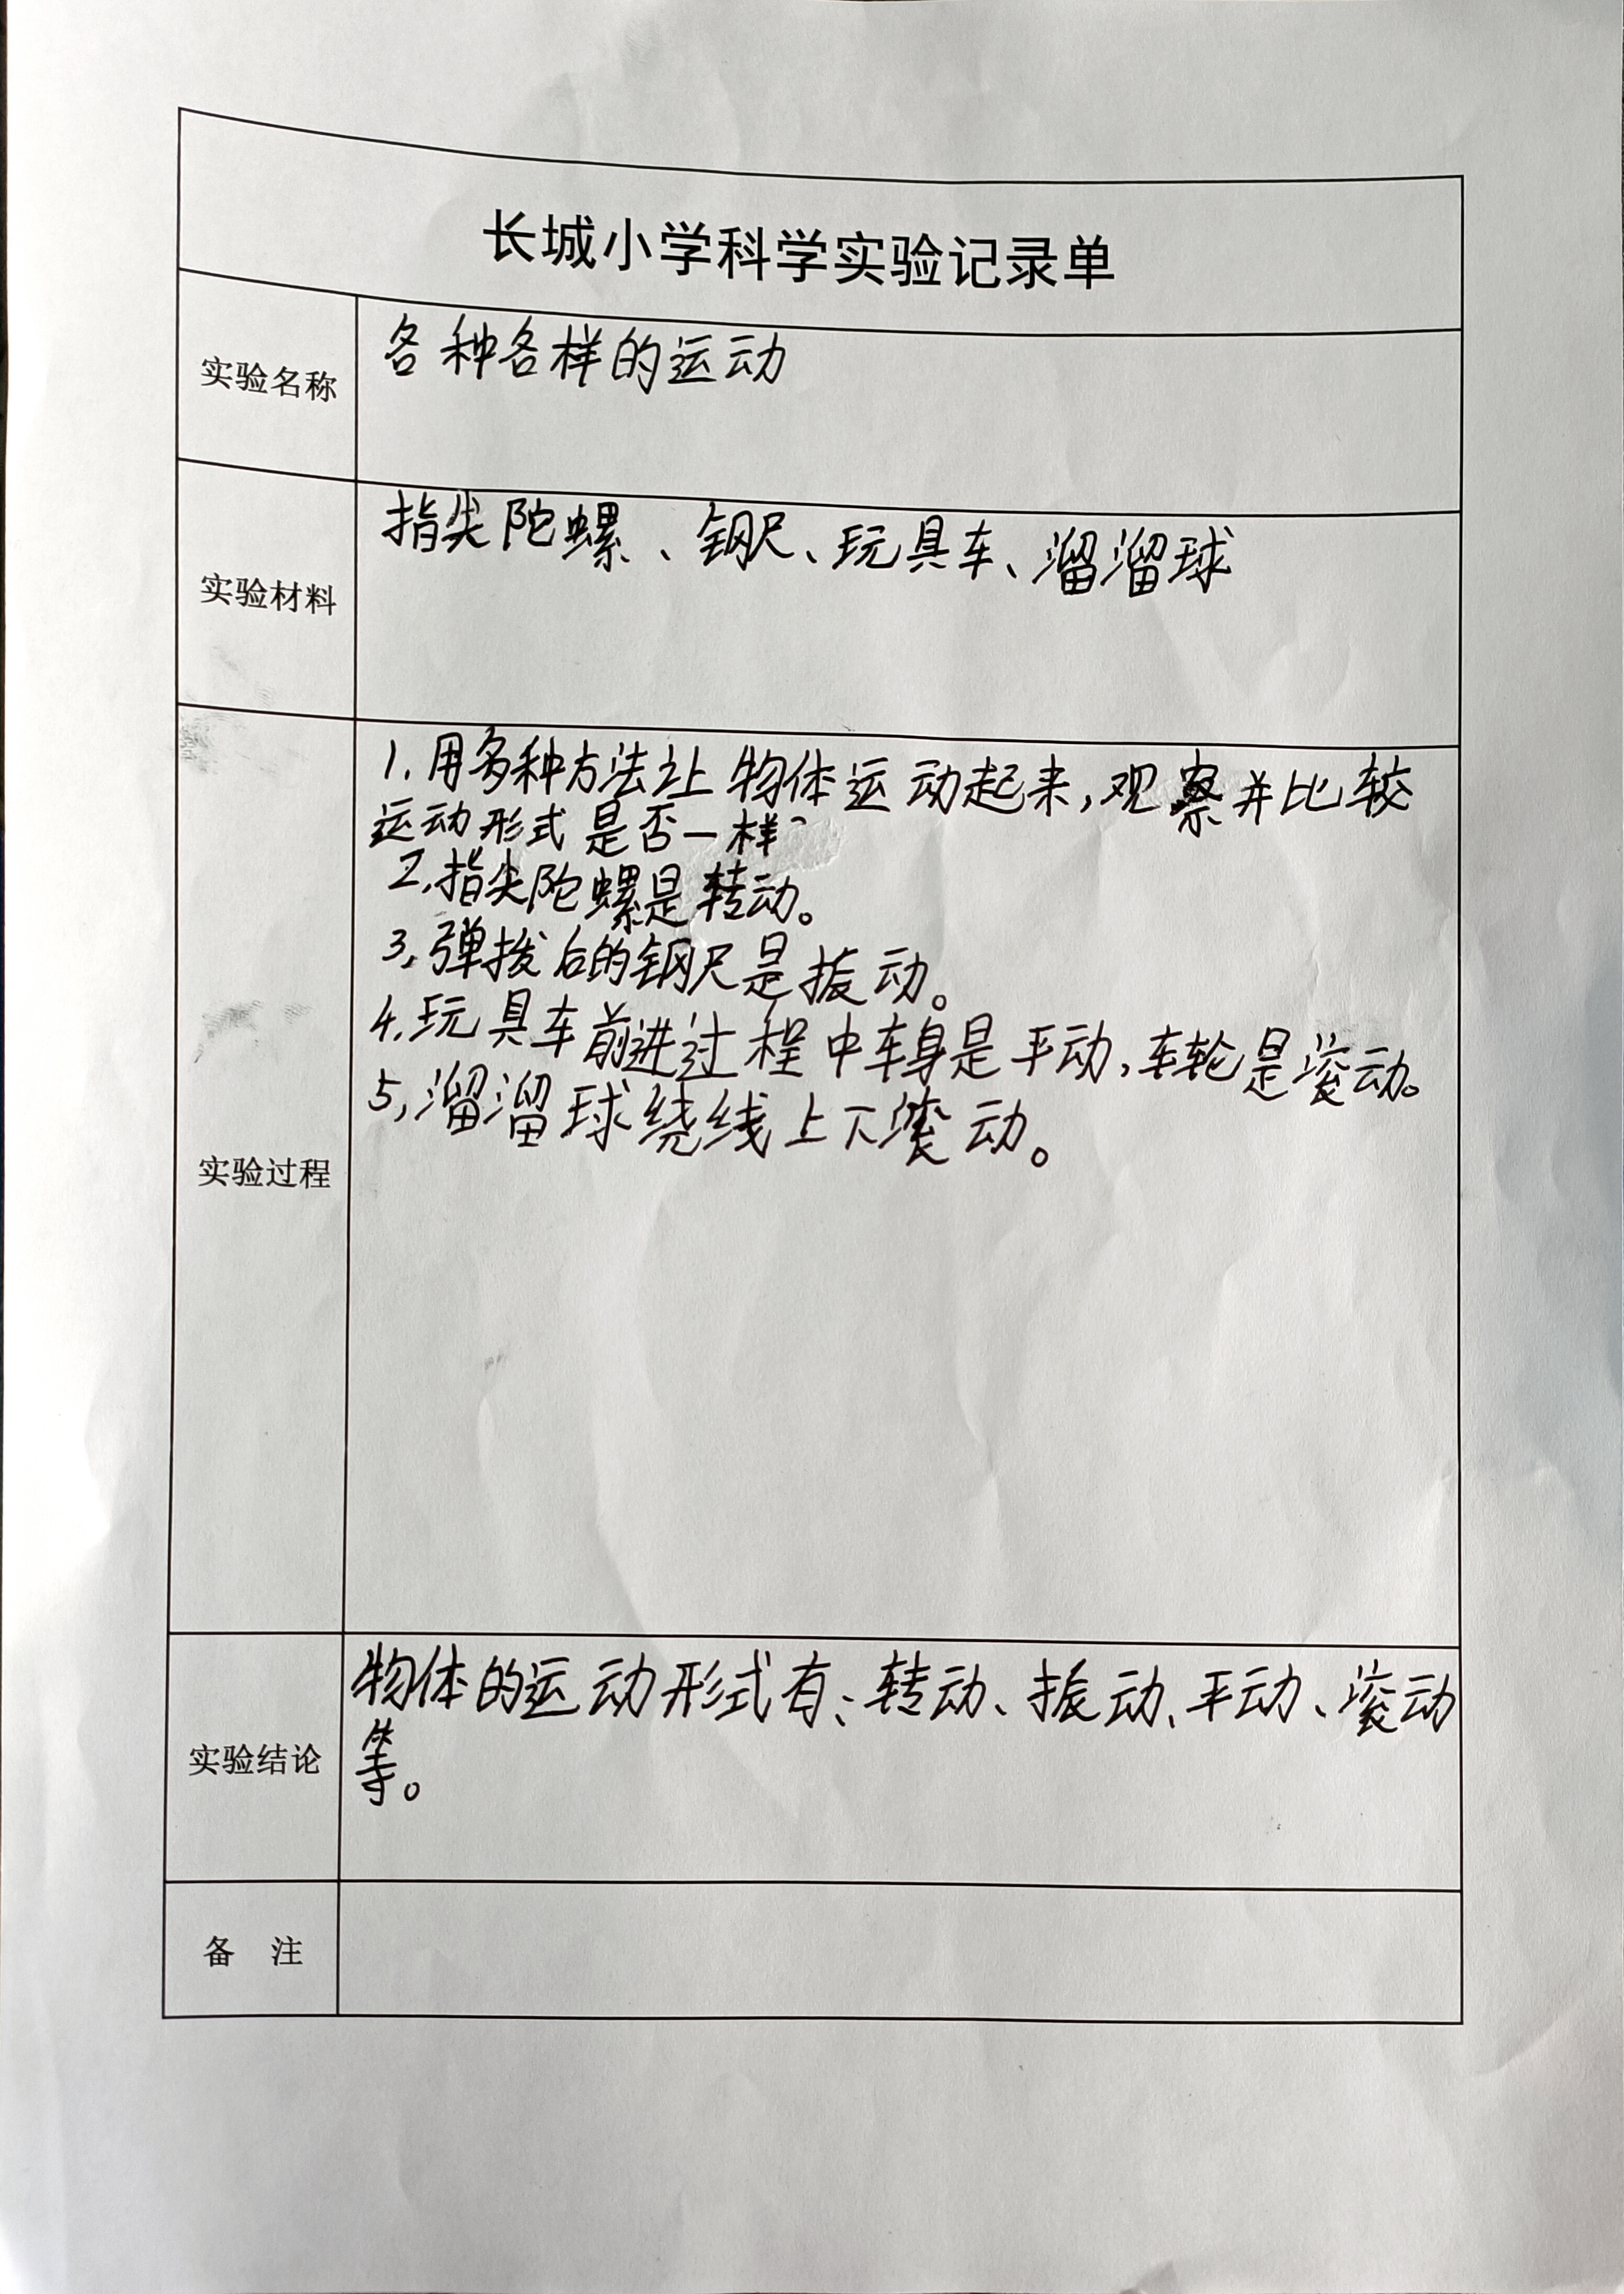 长城小学科学实验记录单
实验名称
各种各样的运动
实验材料
指尖陀螺、钢尺、玩具车、溜溜球
实验过程
1.用多种方法让物体运动起来,观察并比较
运动形式是否一样
2.指尖陀螺是转动。
3.弹拨后的钢尺是振动。
4.玩具车前进过程中车身是平动,车轮是滚动。
5.溜溜球绕线上下滚动。
实验结论
物体的运动形式有:转动、振动、平动、滚动
等。
备 注